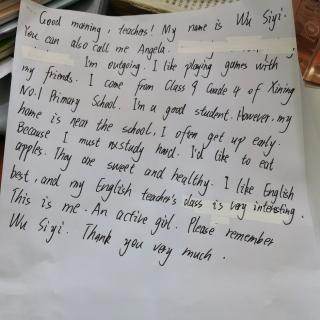 Good morning, teachers! My name is Wu Siyi.
You can also call me Angela.
I'm outgoing. I like playing games with
my friends. I come from Class 9 Grade 4 of Xining
No.1 Primary School. I'm a good student. However, my
home is near the school, I often get up early.
Because I must study hard. I'd like to eat
apples. They are sweet and healthy. I like English
best, and my English teacher's class is very interesting.
This is me. An active girl. Please remember
Wu Siyi. Thank you very much.